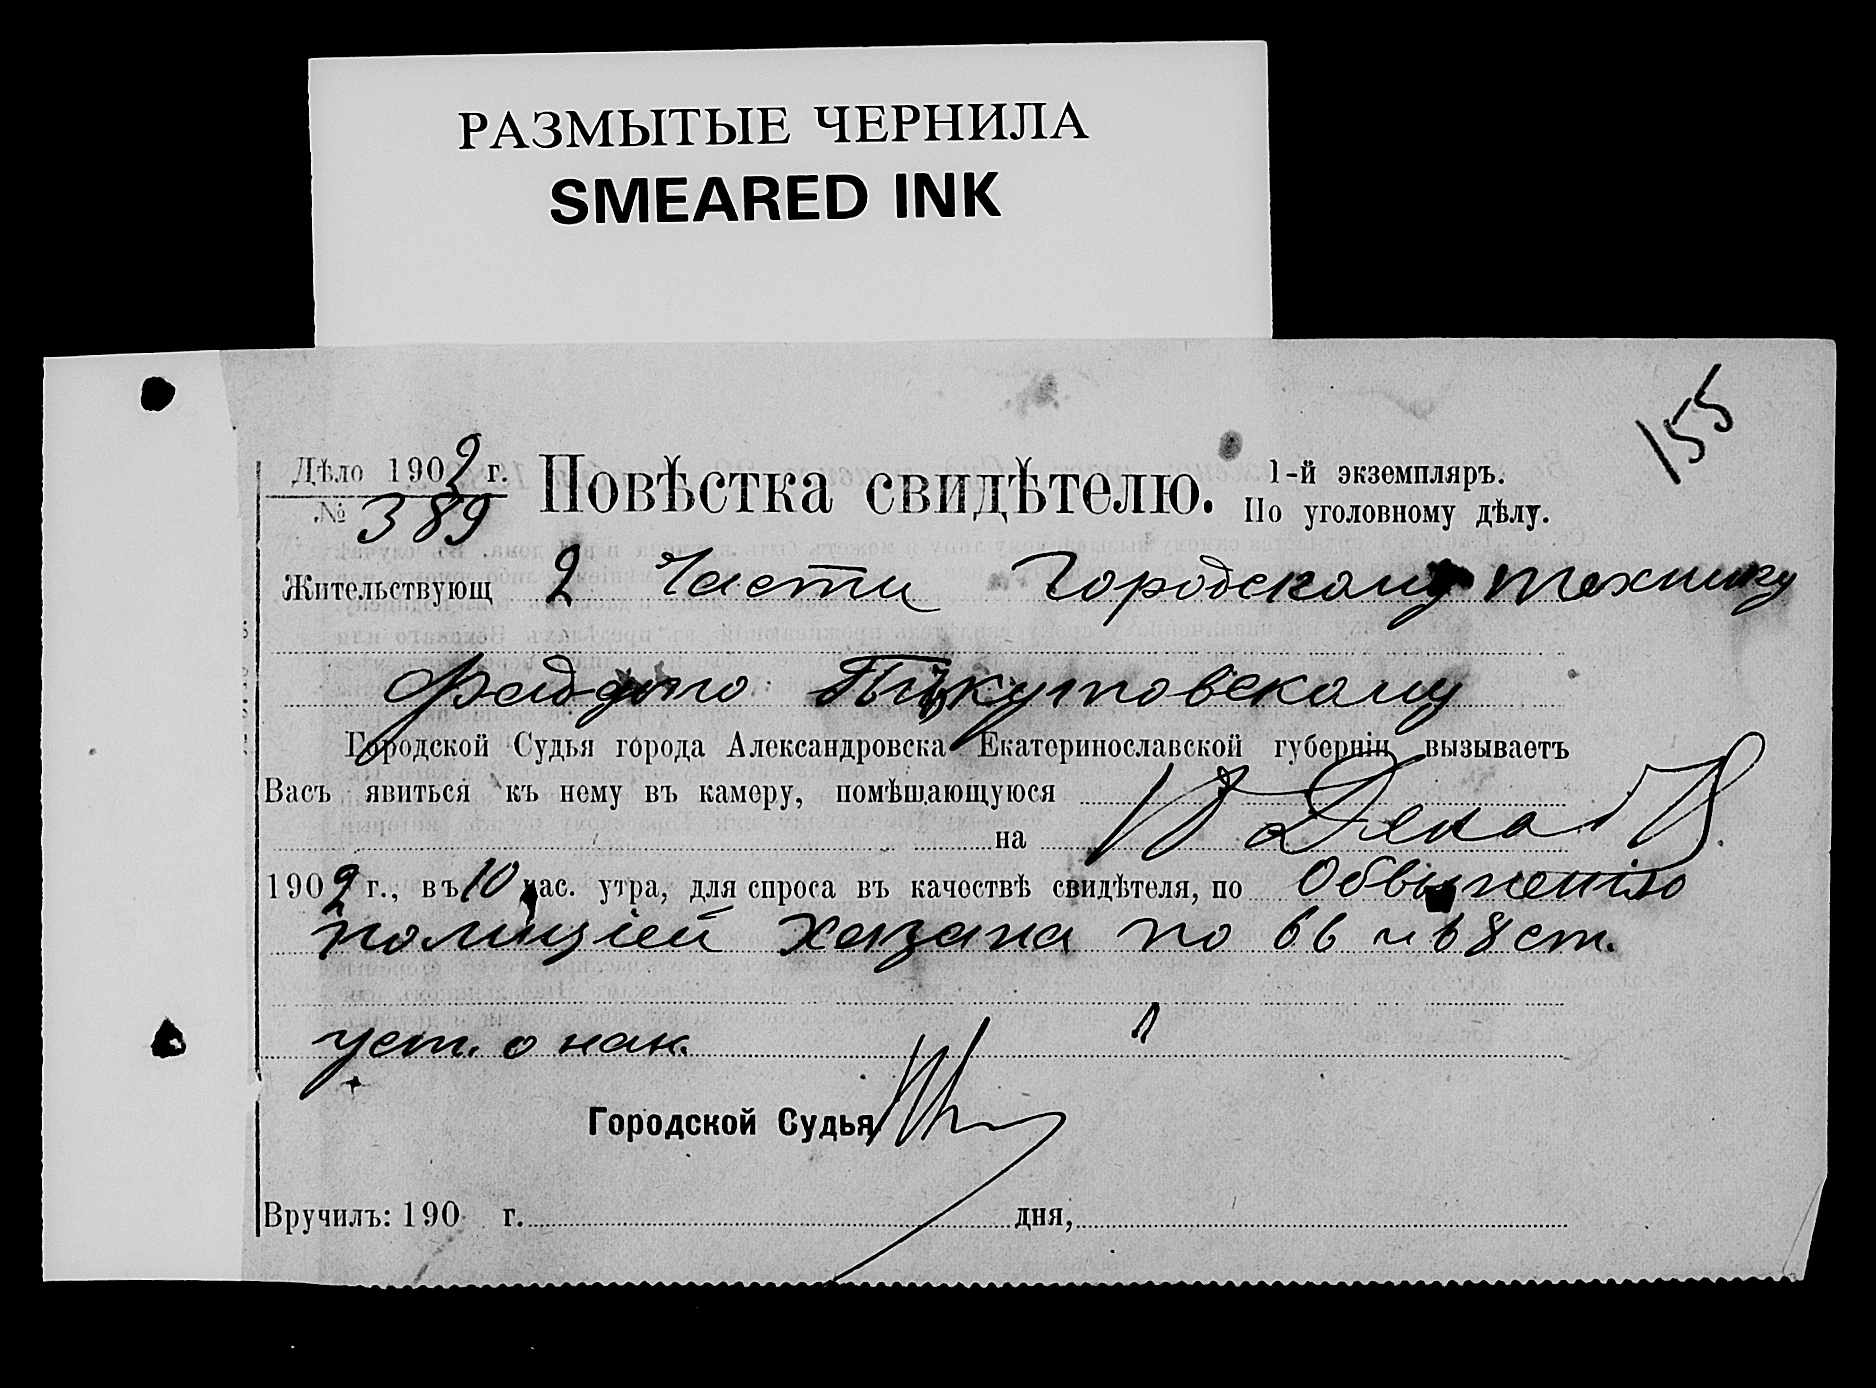 РАЗМЫТЫЕ ЧЕРНИЛА
SMEARED INK
155
Дѣло 1902 г.
№ 389
Повѣстка свидѣтелю.
1-й экземпляръ.
По уголовному дѣлу.
Жительствующ 2 Части Городскому технику
Городской Судья города Александровска Екатеринославской губерніи вызываетъ
Васъ явиться къ нему въ камеру, помѣщающуюся
на Декаб
1902 г., въ 10 час. утра, для спроса въ качествѣ свидѣтеля, по Обвиненію
полиціей Хазана по 66 и 68 ст.
уст. о нак.
Городской Судья
Вручилъ: 190 г. дня,